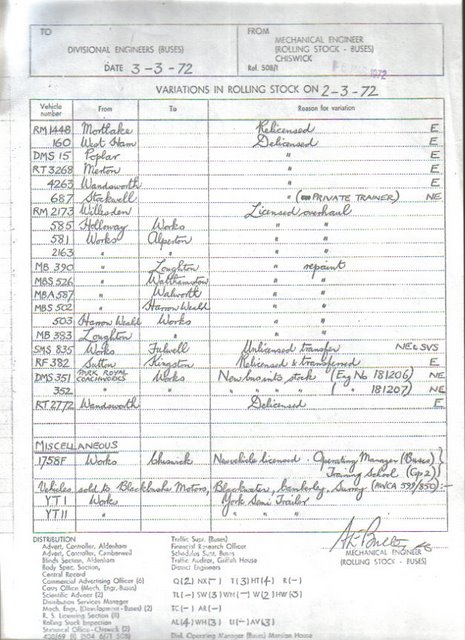 TO
DIVISIONAL ENGINEERS (BUSES)
DATE 3-3-72
FROM
MECHANICAL ENGINEER
(ROLLING STOCK - BUSES)
CHISWICK
Ref. 508/1 1972
VARIATIONS IN ROLLING STOCK ON 2-3-72
Vehicle number From To Reason for variation
RM 1448 Mortlake Relicensed E
160 West Ham Delicensed E
DMS 15 Poplar " E
RT 3268 Merton " E
4263 Wandsworth " E
687 Stockwell " (PRIVATE TRAINER) NE
RM 2173 Willesden Licensed overhaul
585 Holloway Works " "
581 Works Alperton " "
2163 " " " "
MB 390 " Loughton " repaint
MBS 526 " Walthamstow " "
MBA 587 " Walworth " "
MBS 502 " Harrow Weald " "
503 Harrow Weald Works " "
MB 383 Loughton " " "
SMS 835 Works Fulwell Unlicensed transfer NE & SVS
RF 382 Sutton Kingston Relicensed & transferred E
DMS 351 PARK ROYAL COACHWORKS Works New bus into stock (Eng No 181206) NE
352 " " " " " ( " 181207) NE
RT 2772 Wandsworth Delicensed E
MISCELLANEOUS
1758F Works Chiswick New vehicle licensed. Operating Manager (Buses)
Training School (Gp 2)
Vehicles sold to Blackbushe Motors, Blackwater, Camberley, Surrey (AWCA 599/850):-
YT 1 Works York Semi Trailor
YT 11 " " " "
MECHANICAL ENGINEER
(ROLLING STOCK - BUSES)
DISTRIBUTION
Advert. Controller, Aldenham
Advert. Controller, Camberwell
Blinds Section, Aldenham
Body Spec. Section,
Central Record
Commercial Advertising Officer (6)
Cars Office (Mech. Engr. Buses)
Scientific Adviser (2)
Distribution Services Manager
Mech. Engr. (Development - Buses) (2)
R. S. Licensing Section (11)
Rolling Stock Inspection
Statistical Office - Chiswick (2)
Traffic Supt. (Buses)
Financial Research Officer
Schedules Supt. Buses
Traffic Auditor, Griffith House
District Engineers
Q(2) NX(-) T(3) HT(4) R(-)
TL(-) SW(3) WH(-) W(2) HW(3)
TC(-) AR(-)
AL(4) WH(3) U(-) AV(3)
Disk. Operating Manager (Buses) Mansion House